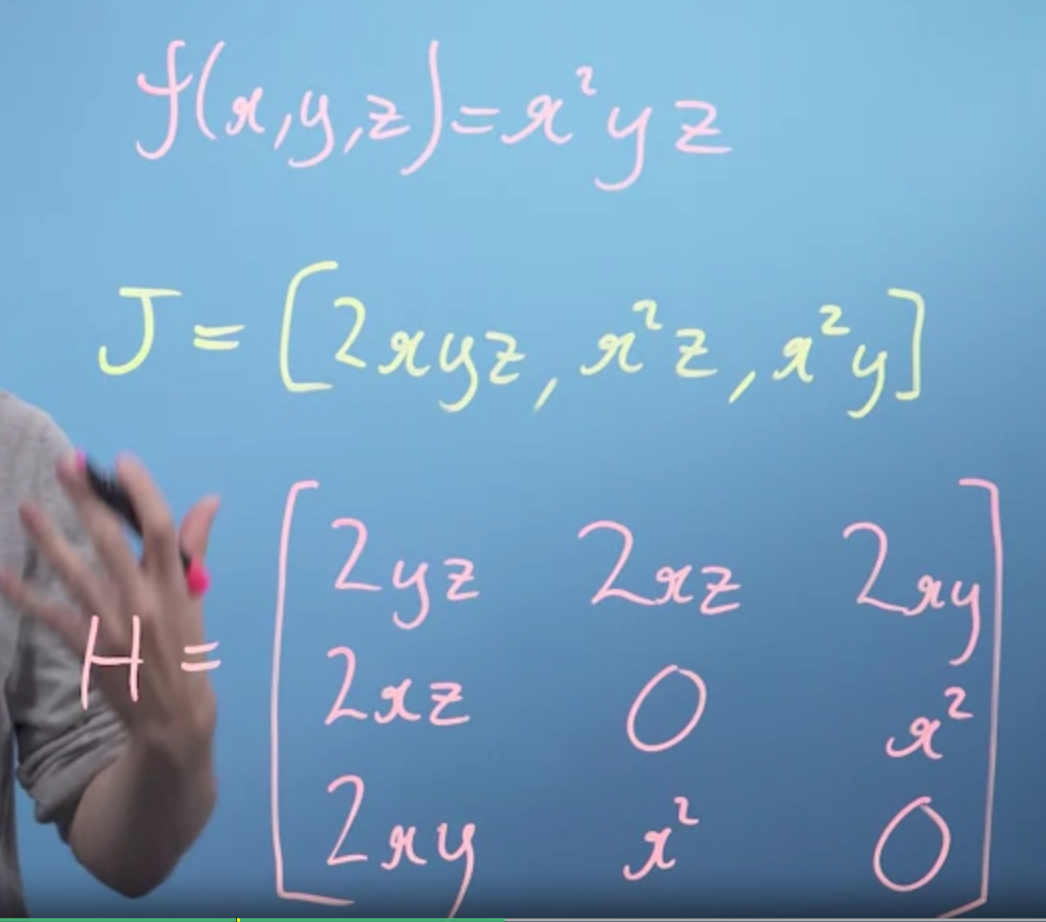 f(x,y,z)=x²yz
J=[2xyz, x²z, x²y]
H= [2yz 2xz 2xy
2xz 0 x²
2xy x² 0]